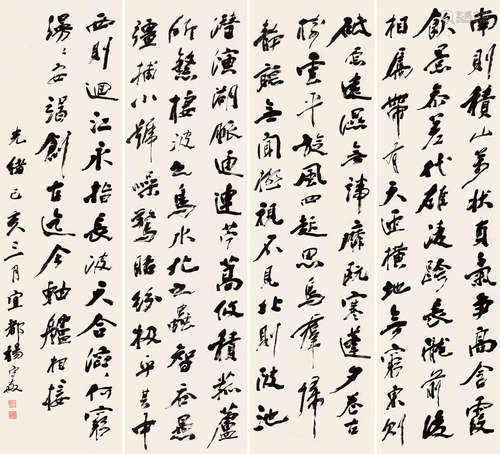 南則積山萬狀負氣爭高含霞
飲景參差代雄淩跨長隴前後
相屬帶有天匝橫地無窮東則
砥原遠隰無靡寒蓬夕卷古
樹雲平旋風四起思鳥羣歸
靜聽無聞極視不見北則陂池
潛演湖脈通連苧蒿攸積菰蘆
所繁棲波之鳥水化之蟲智吞愚
彊捕小號噪驚聒紛乎其中
西則迴江永指長波天合滔〻何窮
漫〻安竭創古迄今軸艫相接
光緒己亥三月宜都楊守敬